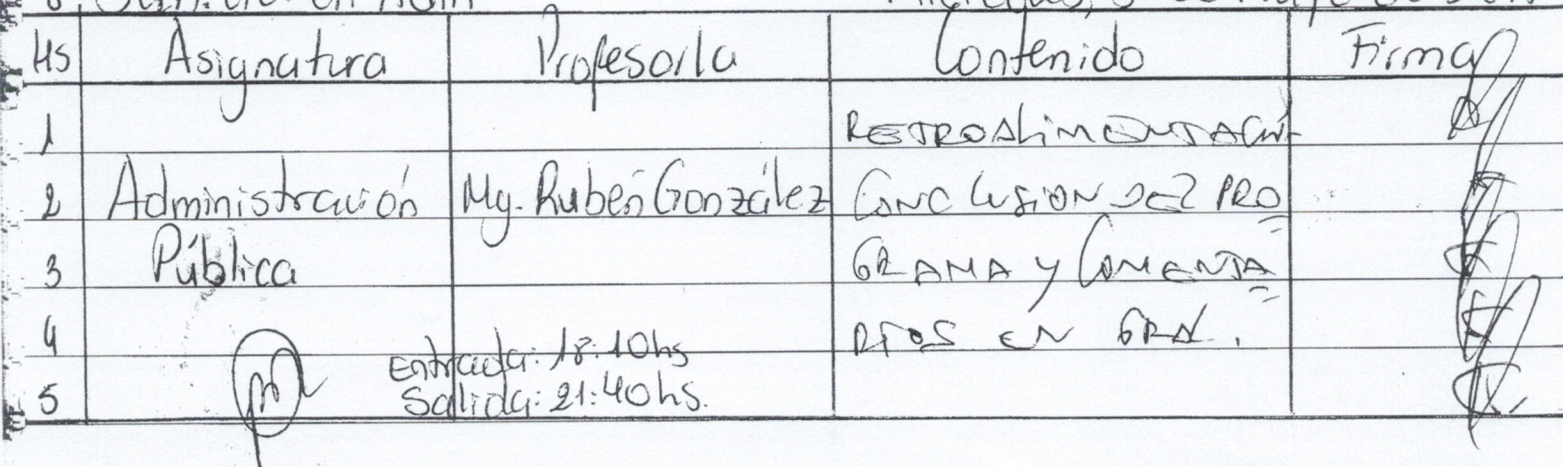 Hs Asignatura Profesor/a Contenido Firma
1 RETROALIMENTACIÓN
2 Administración Mg. Rubén González CONCLUSION DEL PRO
3 Pública GRAMA Y COMENTA
4 RIOS EN GRAL.
Entrada: 18:10hs
5 Salida: 21:40hs.